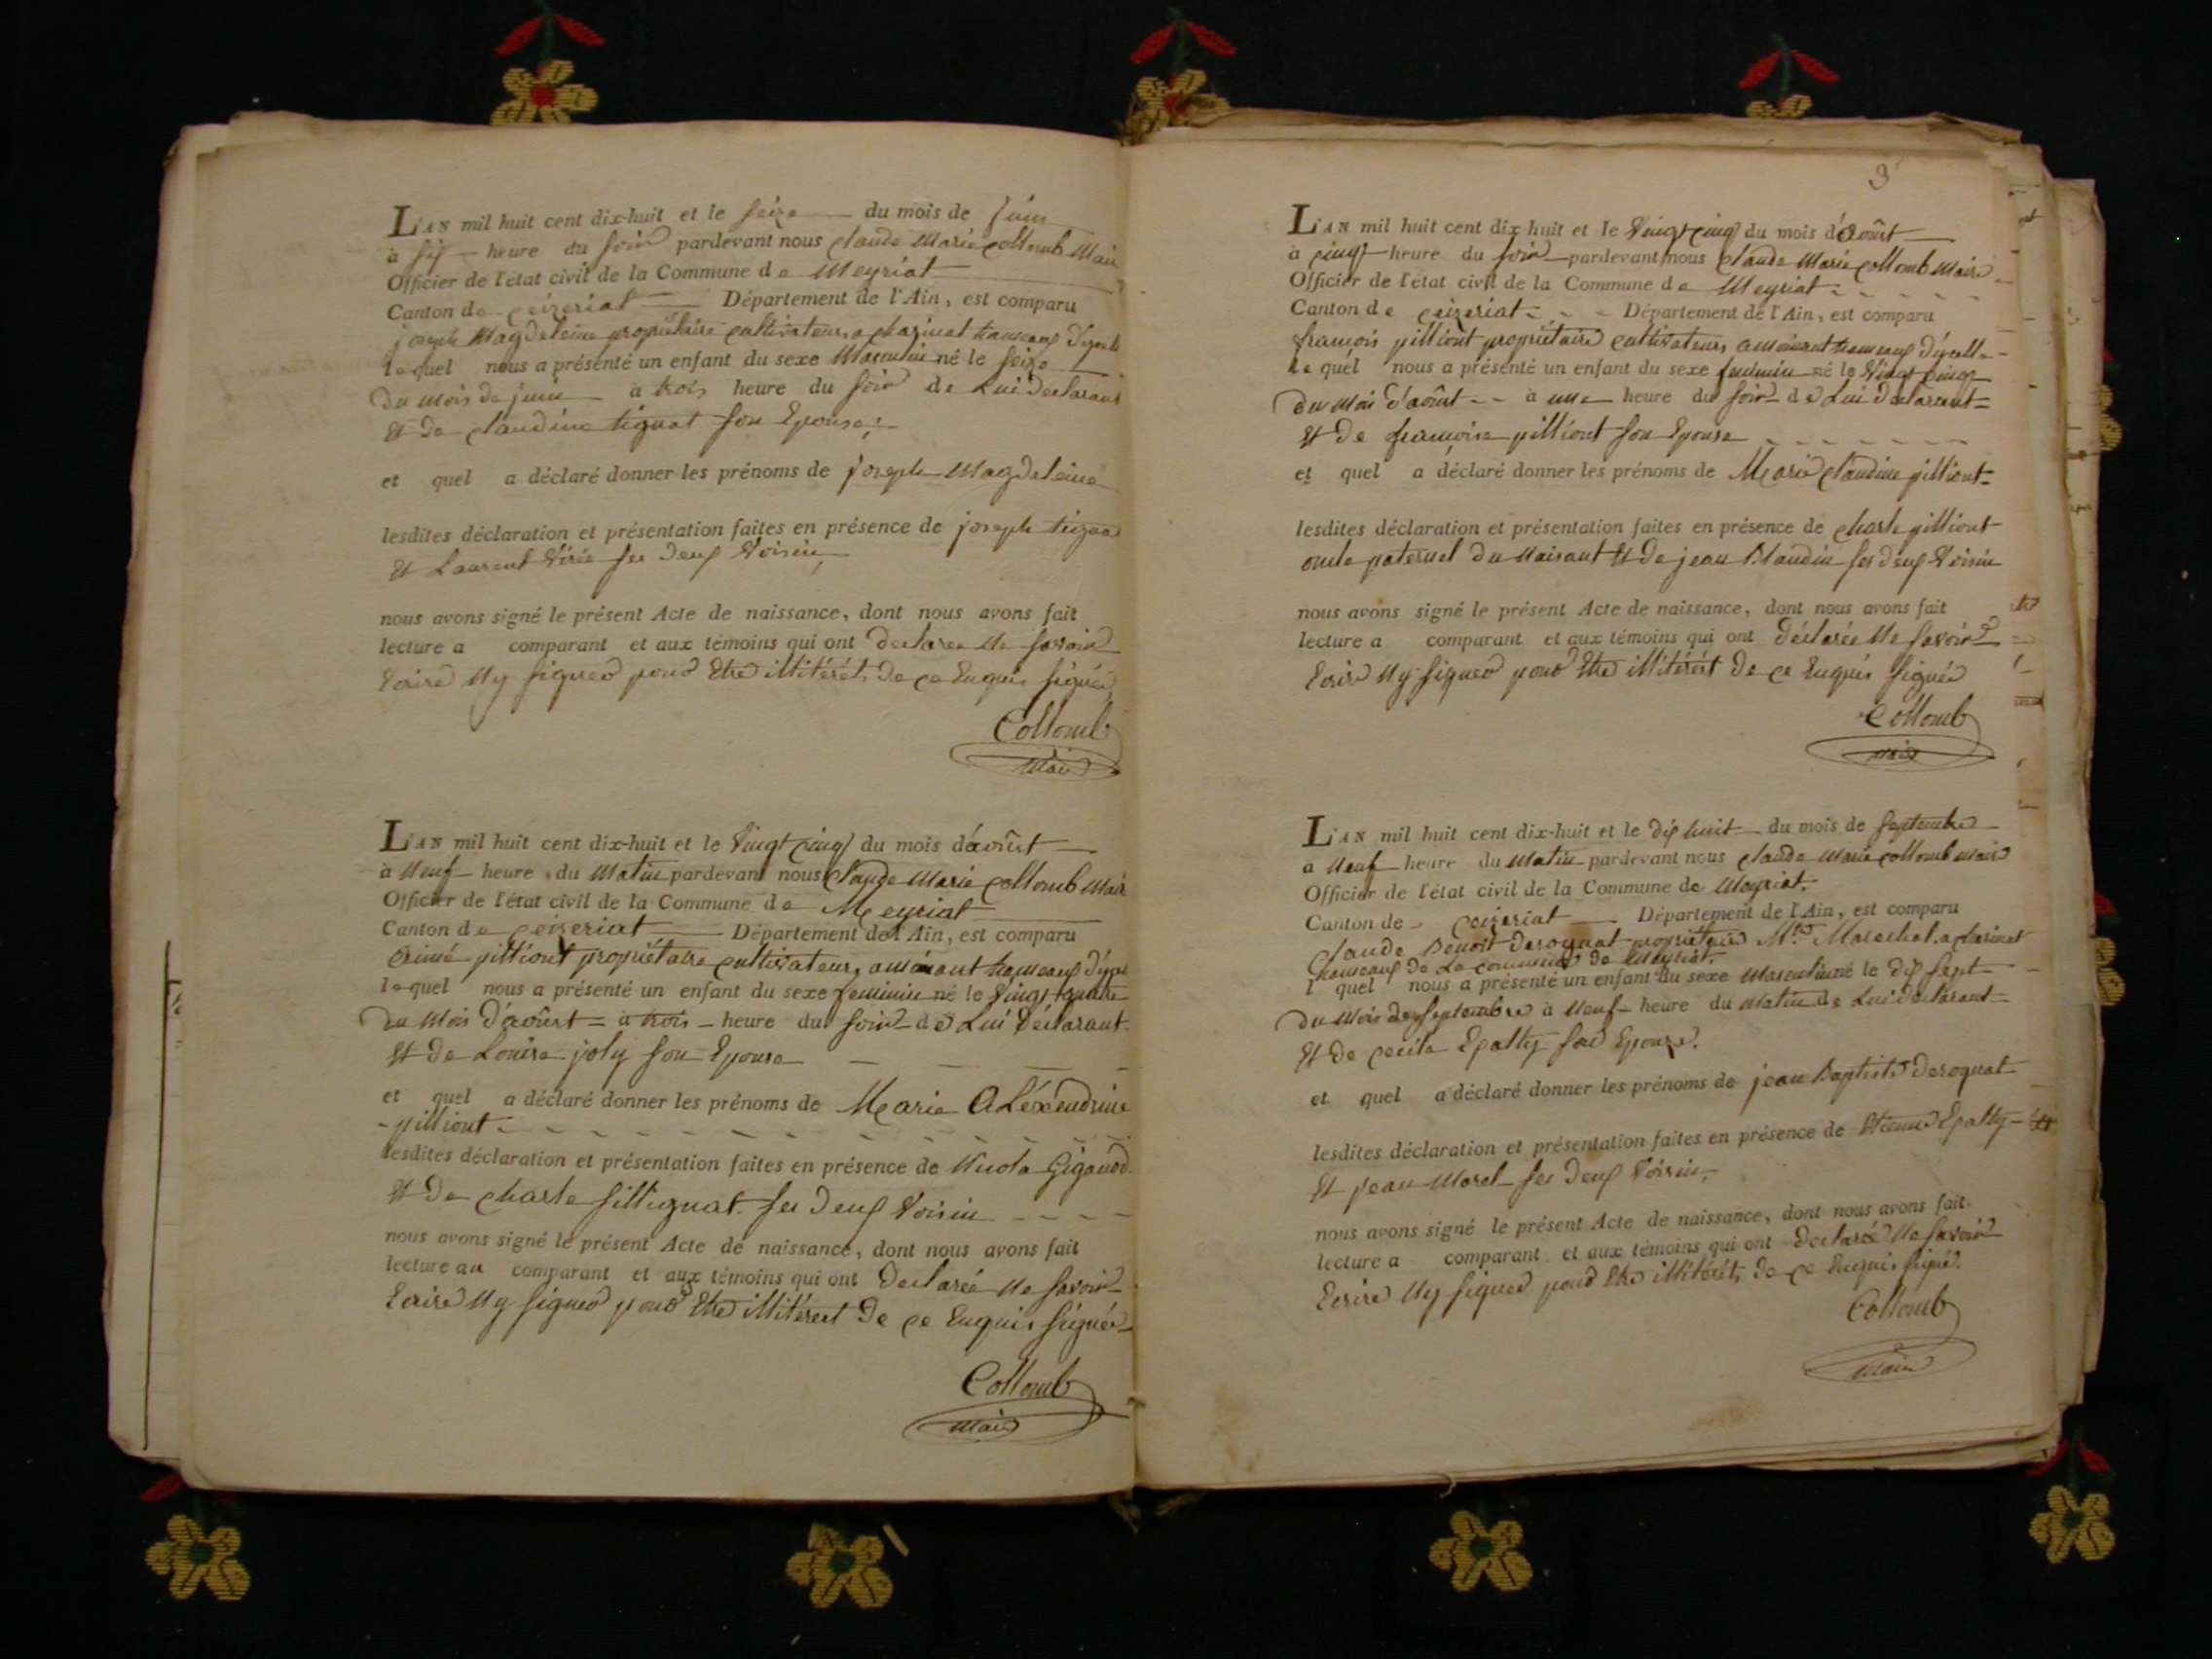 L'AN mil huit cent dix-huit et le seize du mois de juin
à six heure du soir pardevant nous claude Marie collomb Maire
Officier de l'état civil de la Commune de Meyriat
Canton de ceizeriat Département de l'Ain, est comparu
joseph Magdeleine propriétaire cultivateur, a charinat hameaux
lequel nous a présenté un enfant du sexe Masculin né le seize
du mois de juin à trois heure du soir de Lui declarant
Et de claudine tignat son Epouse;
et quel a déclaré donner les prénoms de joseph Magdeleine
lesdites déclaration et présentation faites en présence de joseph
Et Laurent Virie ses deux Voisin,
nous avons signé le présent Acte de naissance, dont nous avons fait
lecture a comparant et aux témoins qui ont declaree Ne savoir
Ecrire Ny signer pour Etre illitérét, de ce Enquis signér
Collomb
Maire
L'AN mil huit cent dix-huit et le Vingt cinq du mois d'avoûst
à Neuf heure du Matin pardevant nous Claude Marie collomb Maire
Officier de l'état civil de la Commune de Meyriat
Canton de ceizeriat Département de l'Ain, est comparu
Aimé pilliont propriétaire cultivateur, hameaux
lequel nous a présenté un enfant du sexe feminin né le Vingt quatre
du Mois d'avoûst = à trois heure du soir de Lui Déclarant
Et de Louise joly son Epouse
et quel a déclaré donner les prénoms de Marie Aléxendrine
pilliont
lesdites déclaration et présentation faites en présence de
Et de charle sillignat ses deux Voisin
nous avons signé le présent Acte de naissance, dont nous avons fait
lecture au comparant et aux témoins qui ont Declarée Ne savoir
Ecrire Ny signer pour Etre illitérert De ce Enquis signér
Collomb
Maire
3
L'AN mil huit cent dix huit et le Vingt cinq du mois d'Aoûst
à cinq heure du soir pardevant nous claude Marie collomb Maire
Officier de l'état civil de la Commune de Meyriat
Canton de ceizeriat Département de l'Ain, est comparu
françois pilliont propriétaire cultivateur, hameaux
lequel nous a présenté un enfant du sexe feminin né le Vingt cinq
du Mois d'aoûst à une heure du soir de Lui declarant =
Et de françoise pilliont son Epouse
et quel a déclaré donner les prénoms de Marie Claudine pilliont =
lesdites déclaration et présentation faites en présence de charle pilliont
oncle paternel du Naisant Et de jean Blandin ses deux Voisin
nous avons signé le présent Acte de naissance, dont nous avons fait
lecture a comparant et aux témoins qui ont déclarée Ne savoir
Ecrire Ny signer pour Etre illitérért De ce Enquis signér
Collomb
Maire
L'AN mil huit cent dix-huit et le dix huit du mois de septembre
à Neuf heure du Matin pardevant nous claude Marie collomb Maire
Officier de l'état civil de la Commune de Meyriat.
Canton de ceizeriat Département de l'Ain, est comparu
claude Benoit derognat propriétaire Marechal a charinat
hameaux de La commune de Meyriat.
l quel nous a présenté un enfant du sexe Masculin né le dix sept
du Mois de septembre à Neuf heure du matin de Lui declarant =
Et de cecile Epally son Epouze.
et quel a déclaré donner les prénoms de jean Baptiste derognat
lesdites déclaration et présentation faites en présence de Etienne Epally Et
Et jean Morel ses deux Voisin,
nous avons signé le présent Acte de naissance, dont nous avons fait
lecture a comparant et aux témoins qui ont declarée Ne savoir
Ecrire Ny signer pour Etre illitérét, de ce Enquis signé.
Collomb
Maire